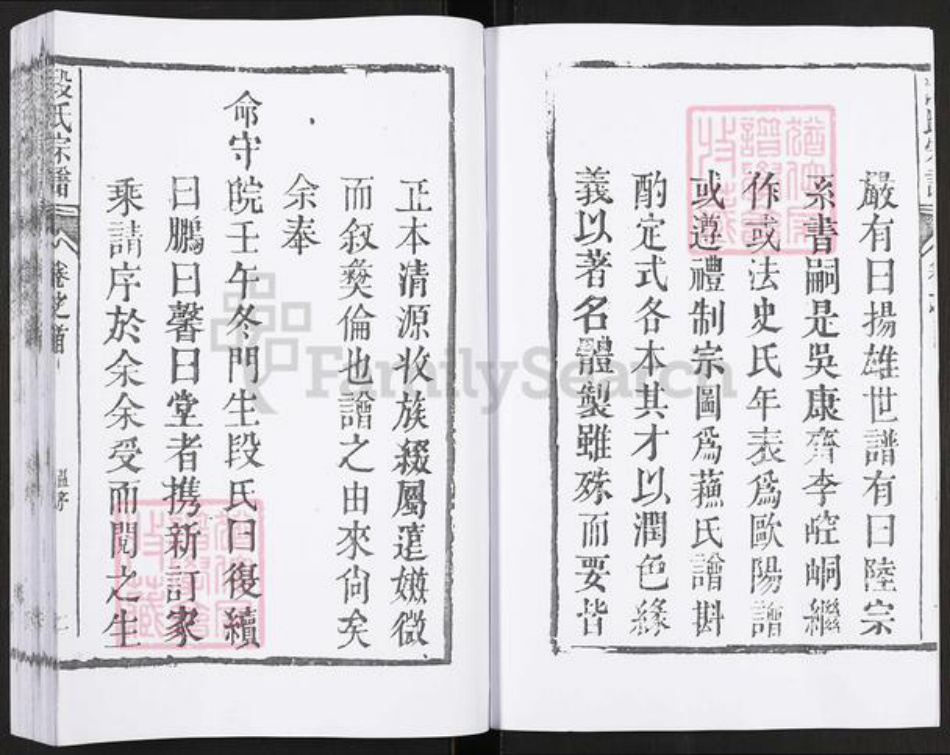 嚴有曰揚雄世譜有曰陸宗
系書嗣是吳康齋李崆峒繼
作或法史氏年表爲歐陽譜
或遵禮制宗圖爲蘓氏譜斟
酌定式各本其才以潤色緣
義以著名體製雖殊而要皆
段氏宗譜
卷之首
正本清源收族綴屬遠嫌微
而敘彝倫也譜之由來尙矣
余奉
命守皖壬午冬門生段氏曰復續
曰鵬曰馨曰堂者携新訂家
乘請序於余余受而閱之生
FamilySearch